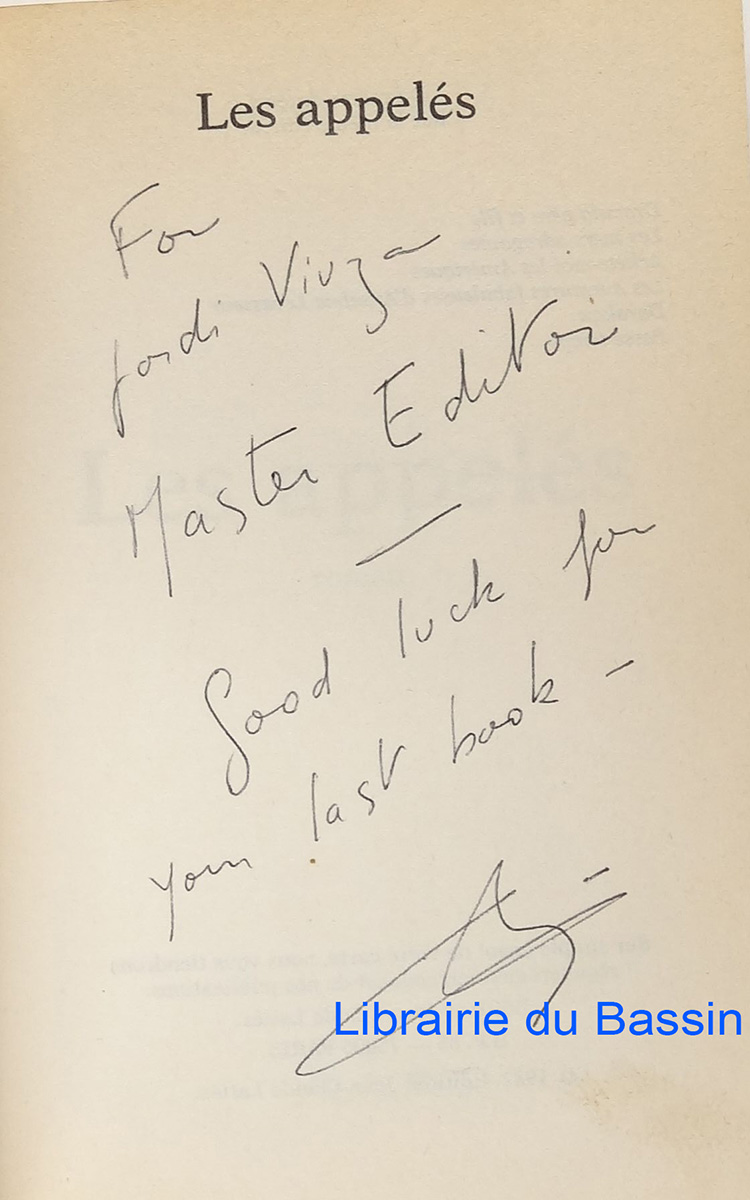 Les appelés
For
Jordi Vivza
Master Editor
—
Good luck for
your last book –
Librairie du Bassin